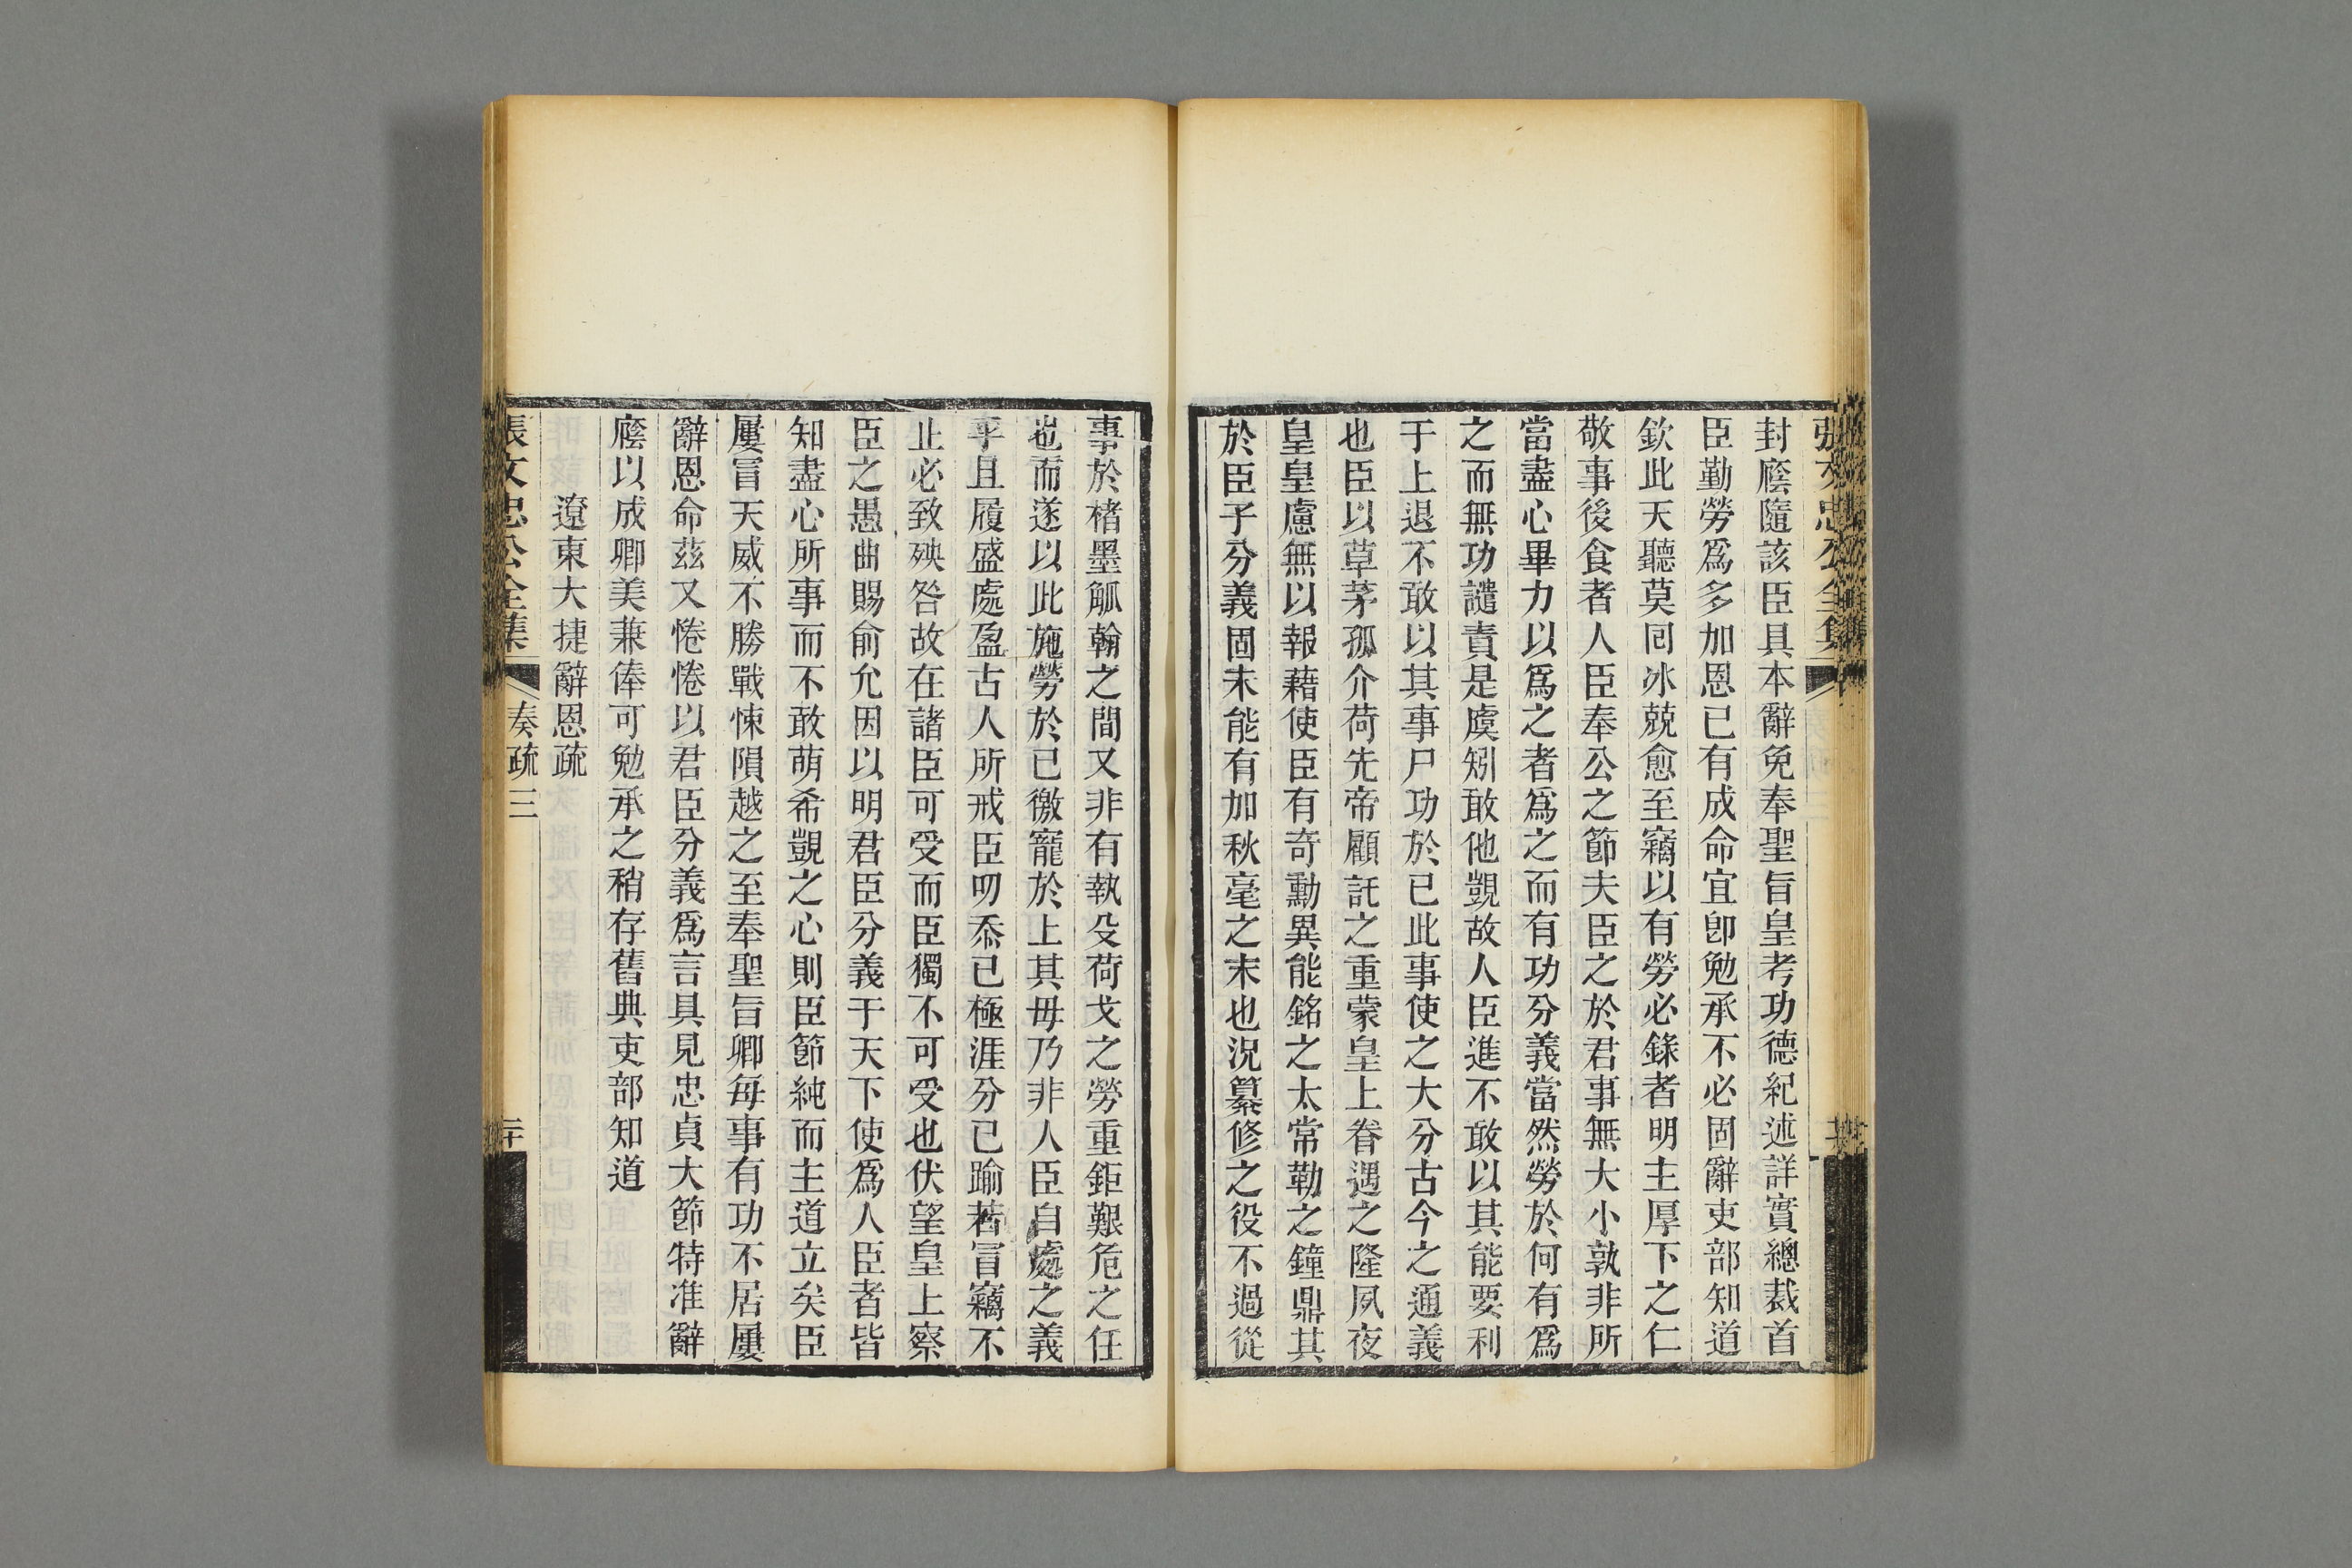 張文忠公全集
封廕隨該臣具本辭免奉聖旨皇考功德紀述詳實總裁首
臣勤勞爲多加恩已有成命宜卽勉承不必固辭吏部知道
欽此天聽莫囘冰兢愈至竊以有勞必錄者明主厚下之仁
敬事後食者人臣奉公之節夫臣之於君事無大小孰非所
當盡心畢力以爲之者爲之而有功分義當然勞於何有爲
之而無功譴責是虞矧敢他覬故人臣進不敢以其能要利
于上退不敢以其事尸功於已此事使之大分古今之通義
也臣以草茅孤介荷先帝顧託之重蒙皇上眷遇之隆夙夜
皇皇慮無以報藉使臣有奇勳異能銘之太常勒之鐘鼎其
於臣子分義固未能有加秋毫之末也況纂修之役不過從
事於楮墨觚翰之間又非有執殳荷戈之勞重鉅艱危之任
也而遂以此施勞於已徼寵於上其毋乃非人臣自處之義
乎且履盛處盈古人所戒臣叨忝已極涯分已踰若冒竊不
止必致殃咎故在諸臣可受而臣獨不可受也伏望皇上察
臣之愚曲賜俞允因以明君臣分義于天下使爲人臣者皆
知盡心所事而不敢萌希覬之心則臣節純而主道立矣臣
屢冒天威不勝戰悚隕越之至奉聖旨卿每事有功不居屢
辭恩命茲又惓惓以君臣分義爲言具見忠貞大節特准辭
廕以成卿美兼俸可勉承之稍存舊典吏部知道
遼東大捷辭恩疏
張文忠公全集 奏疏三